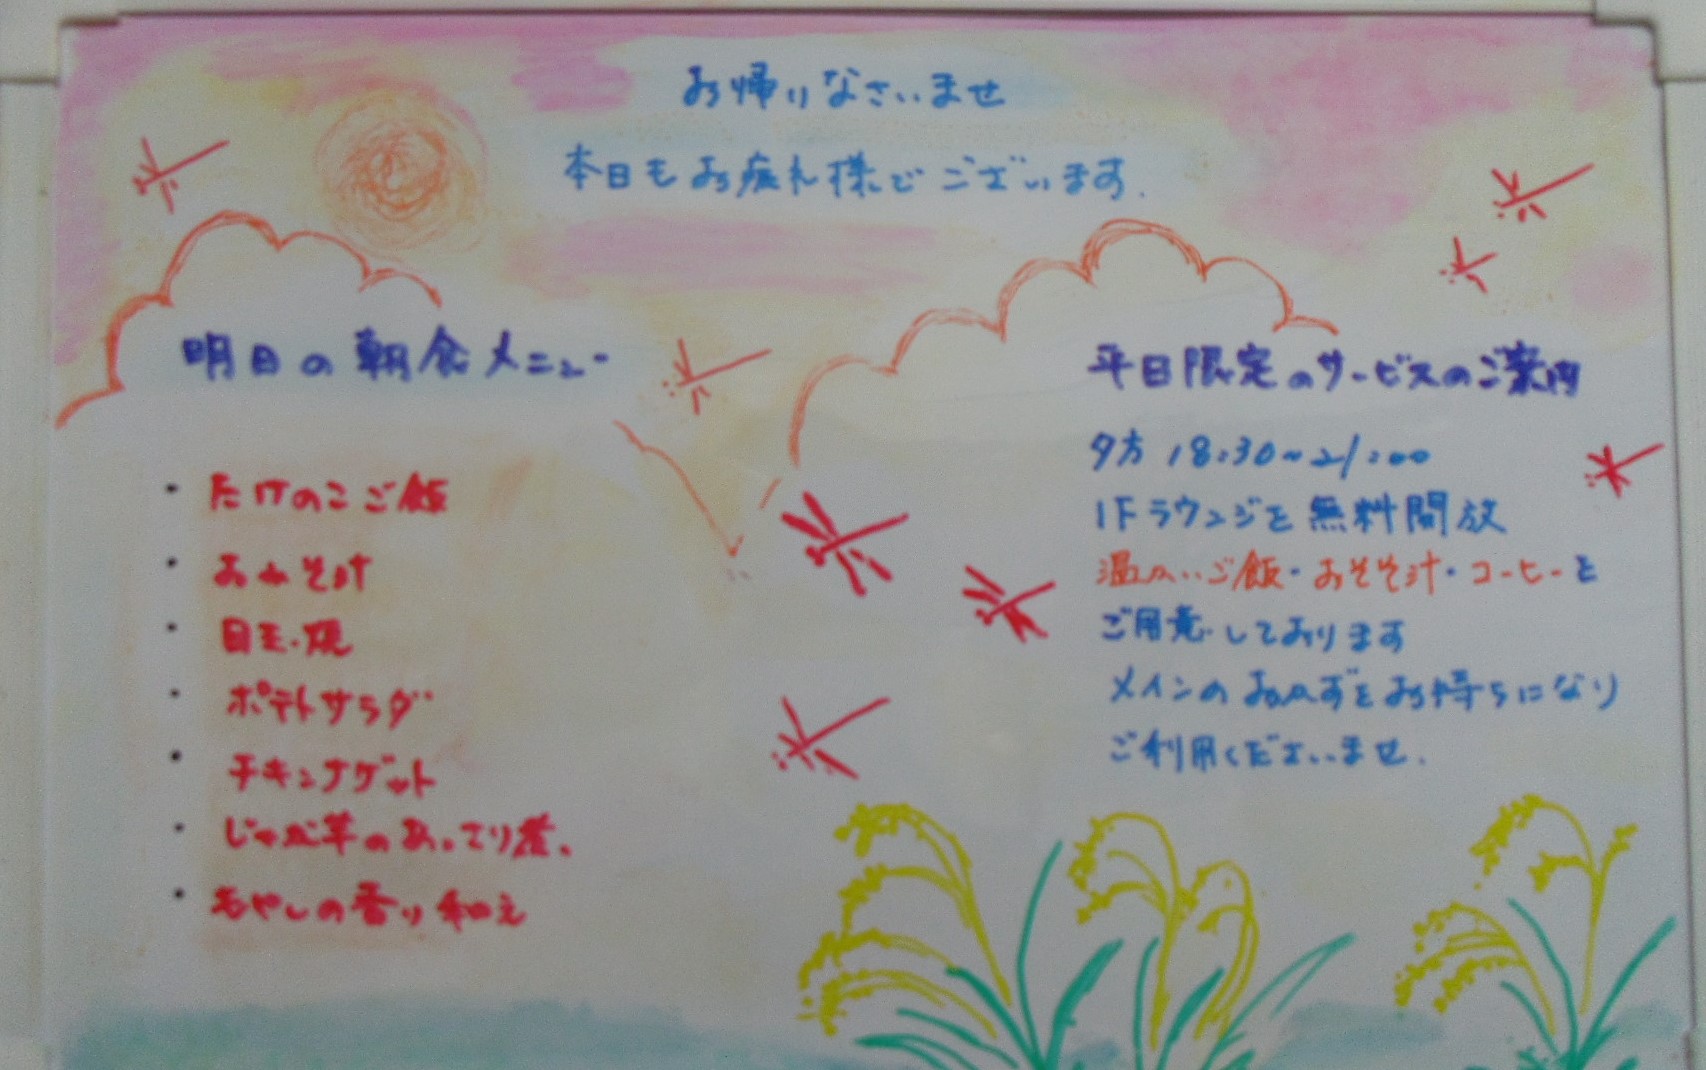 お帰りなさいませ
本日もお疲れ様でございます.
明日の朝食メニュー
・たけのこご飯
・おみそ汁
・目玉焼
・ポテトサラダ
・チキンナゲット
・じゃが芋のあっさり煮
・もやしの香り和え
平日限定のサービスのご案内
夕方 18:30~21:00
1Fラウンジを無料開放
温かいご飯・おみそ汁・コーヒーを
ご用意しております
メインのおかずをお持ちになり
ご利用くださいませ.